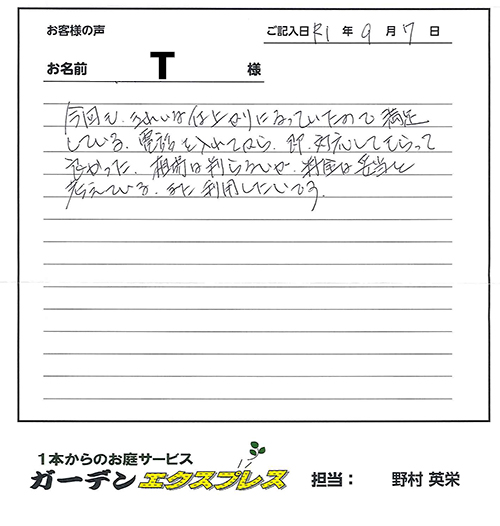 お客様の声
ご記入日 R1 年 9 月 7 日
お名前 T 様
今回も、きれいな仕上がりになっていたので満足
している。電話を入れてから、即、対応してもらって
良かった。相場は判らないが、料金は妥当と
考えている。また利用したいです。
1本からのお庭サービス
ガーデンエクスプレス 担当： 野村 英栄